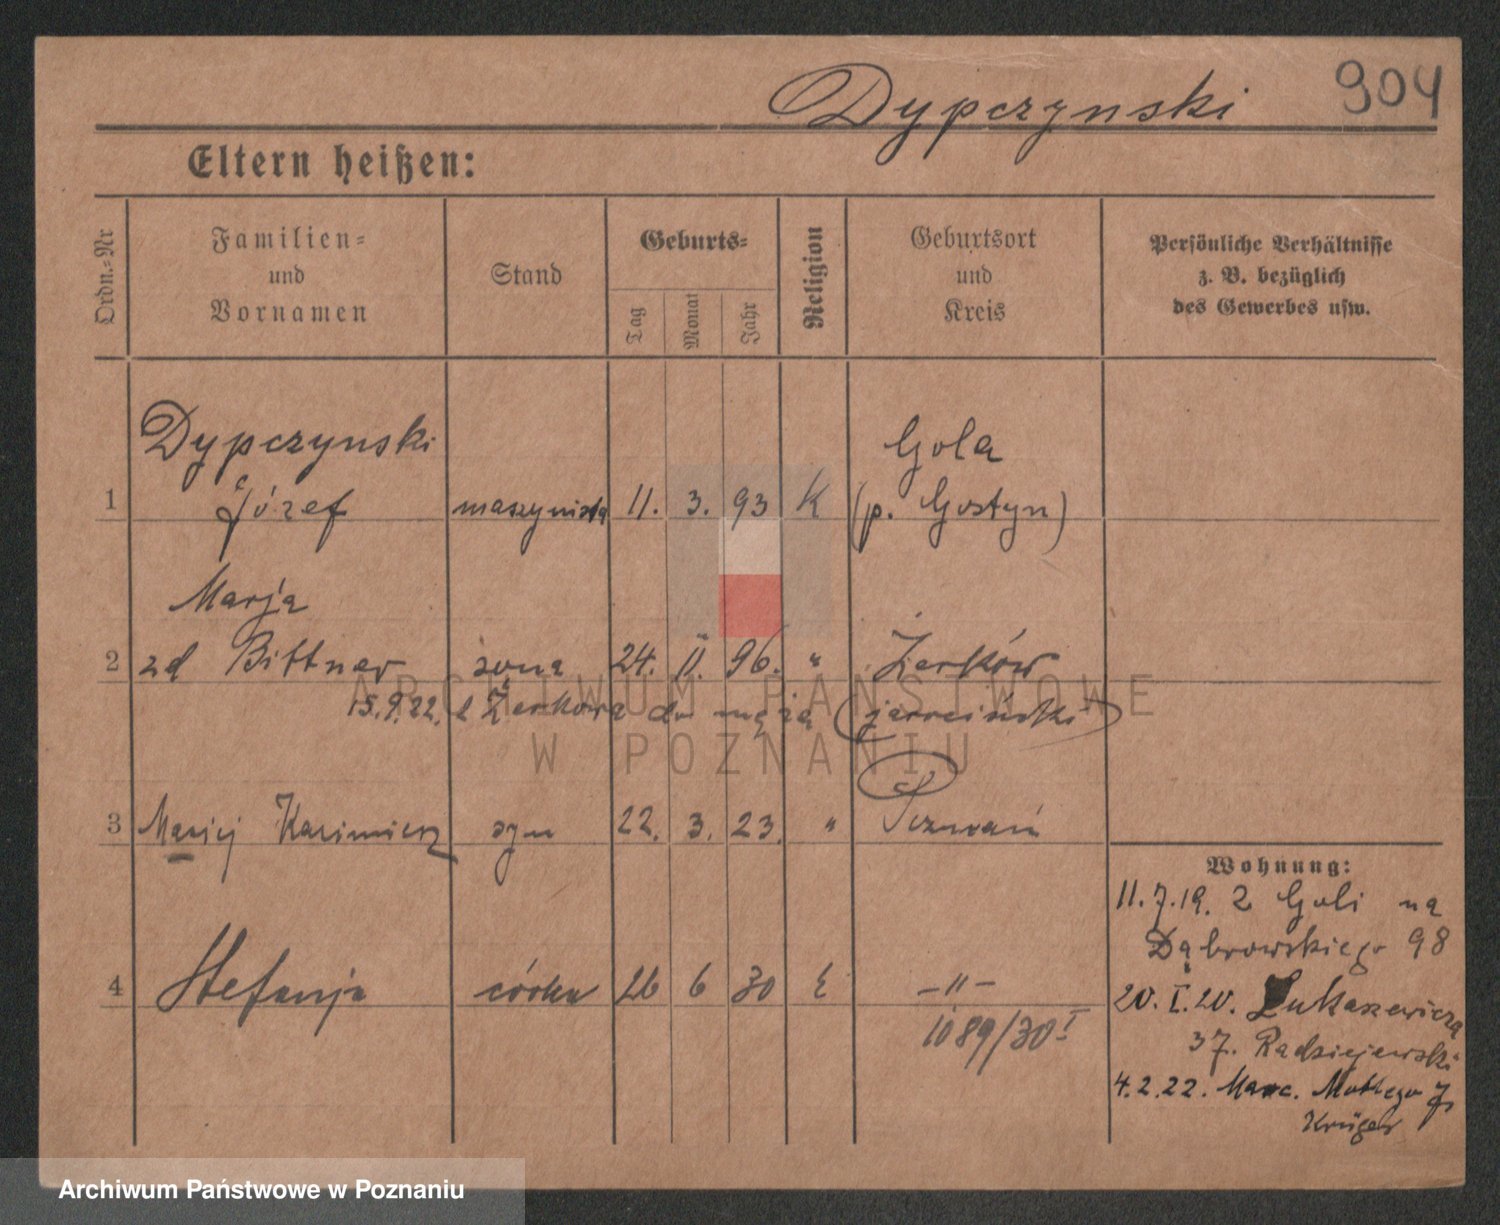 904
Dypczynski
Eltern heißen:
Ordn.-Nr
Familien-
und
Vornamen
Stand
Geburts-
Tag
Monat
Jahr
Religion
Geburtsort
und
Kreis
Persönliche Verhältnisse
z. B. bezüglich
des Gewerbes usw.
Dypczynski
Gola
1 Józef maszynista 11. 3. 93 K (p. Gostyn)
Marja
2 zd Bittner żona 24. 11. 96. " Żerków
15.9.22. z Żerkowa do męża (jarociński)
3 Maciej Kazimierz syn 22. 3. 23. " Poznań
4 Stefanja córka 26 6 30 -"-
1089/30 I
Wohnung:
11.7.19. z Goli na
Dąbrowskiego 98
20. I. 20. Łukaszewicza
37. Radziejewski
4.2.22. Marc. Mottego 7
Krüger
ARCHIWUM PAŃSTWOWE
W POZNANIU
Archiwum Państwowe w Poznaniu